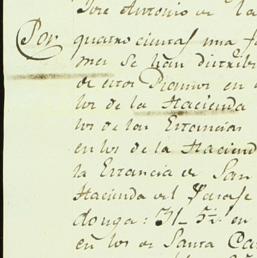 Jose Antonio de la
Por quatro cientas una fa
mes se han distrib
de estos Dominos en
los de la Hacienda
los de las Estancias
en los de la Haciend
la Estancia de San
Hacienda del Parase
donga: en
en los de Santa Ca